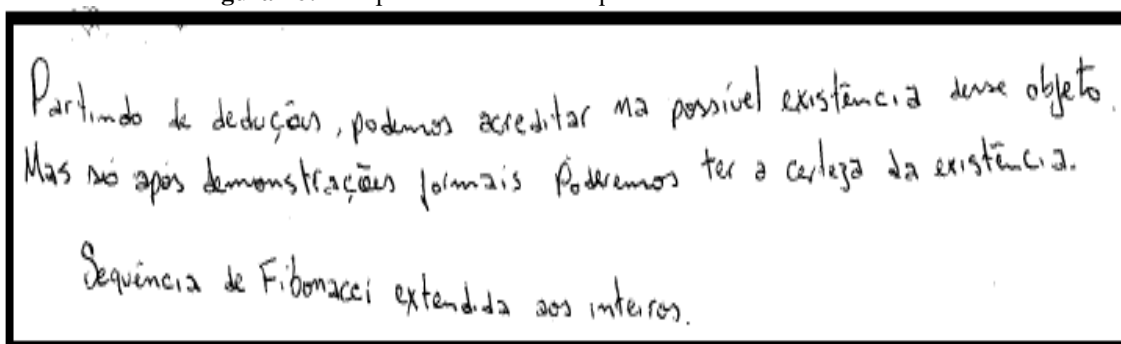 Partindo de deduções, podemos acreditar na possível existência desse objeto.
Mas só após demonstrações formais Poderemos ter a certeza da existência.
Sequência de Fibonacci extendida aos inteiros.